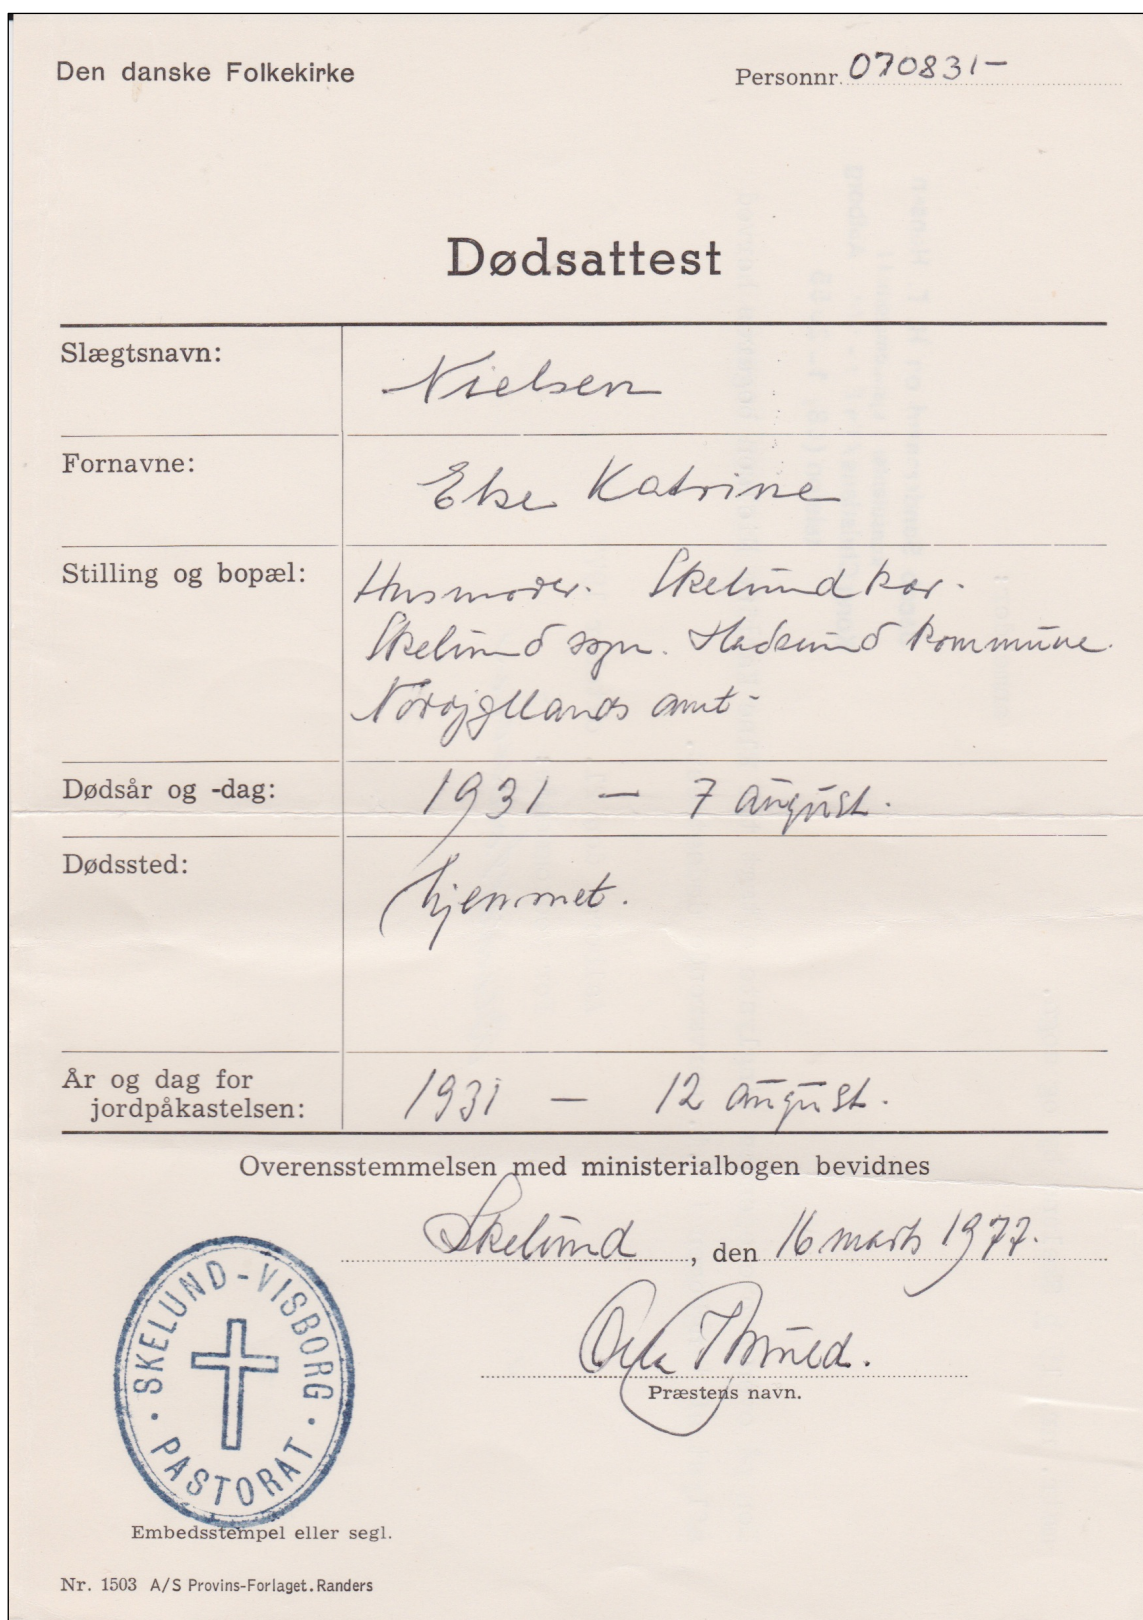 Den danske Folkekirke
Personnr. 070831-
Dødsattest
Slægtsnavn: Nielsen
Fornavne: Else Katrine
Stilling og bopæl: Husmoder. Skelund kær.
Skelund sogn. Hadsund kommune.
Nordjyllands amt-
Dødsår og -dag: 1931 — 7 august.
Dødssted: hjemmet.
År og dag for
jordpåkastelsen: 1931 — 12 august.
Overensstemmelsen med ministerialbogen bevidnes
Skelund, den 16 marts 1977.
Præstens navn.
SKELUND-VISBORG · PASTORAT ·
Embedsstempel eller segl.
Nr. 1503 A/S Provins-Forlaget. Randers